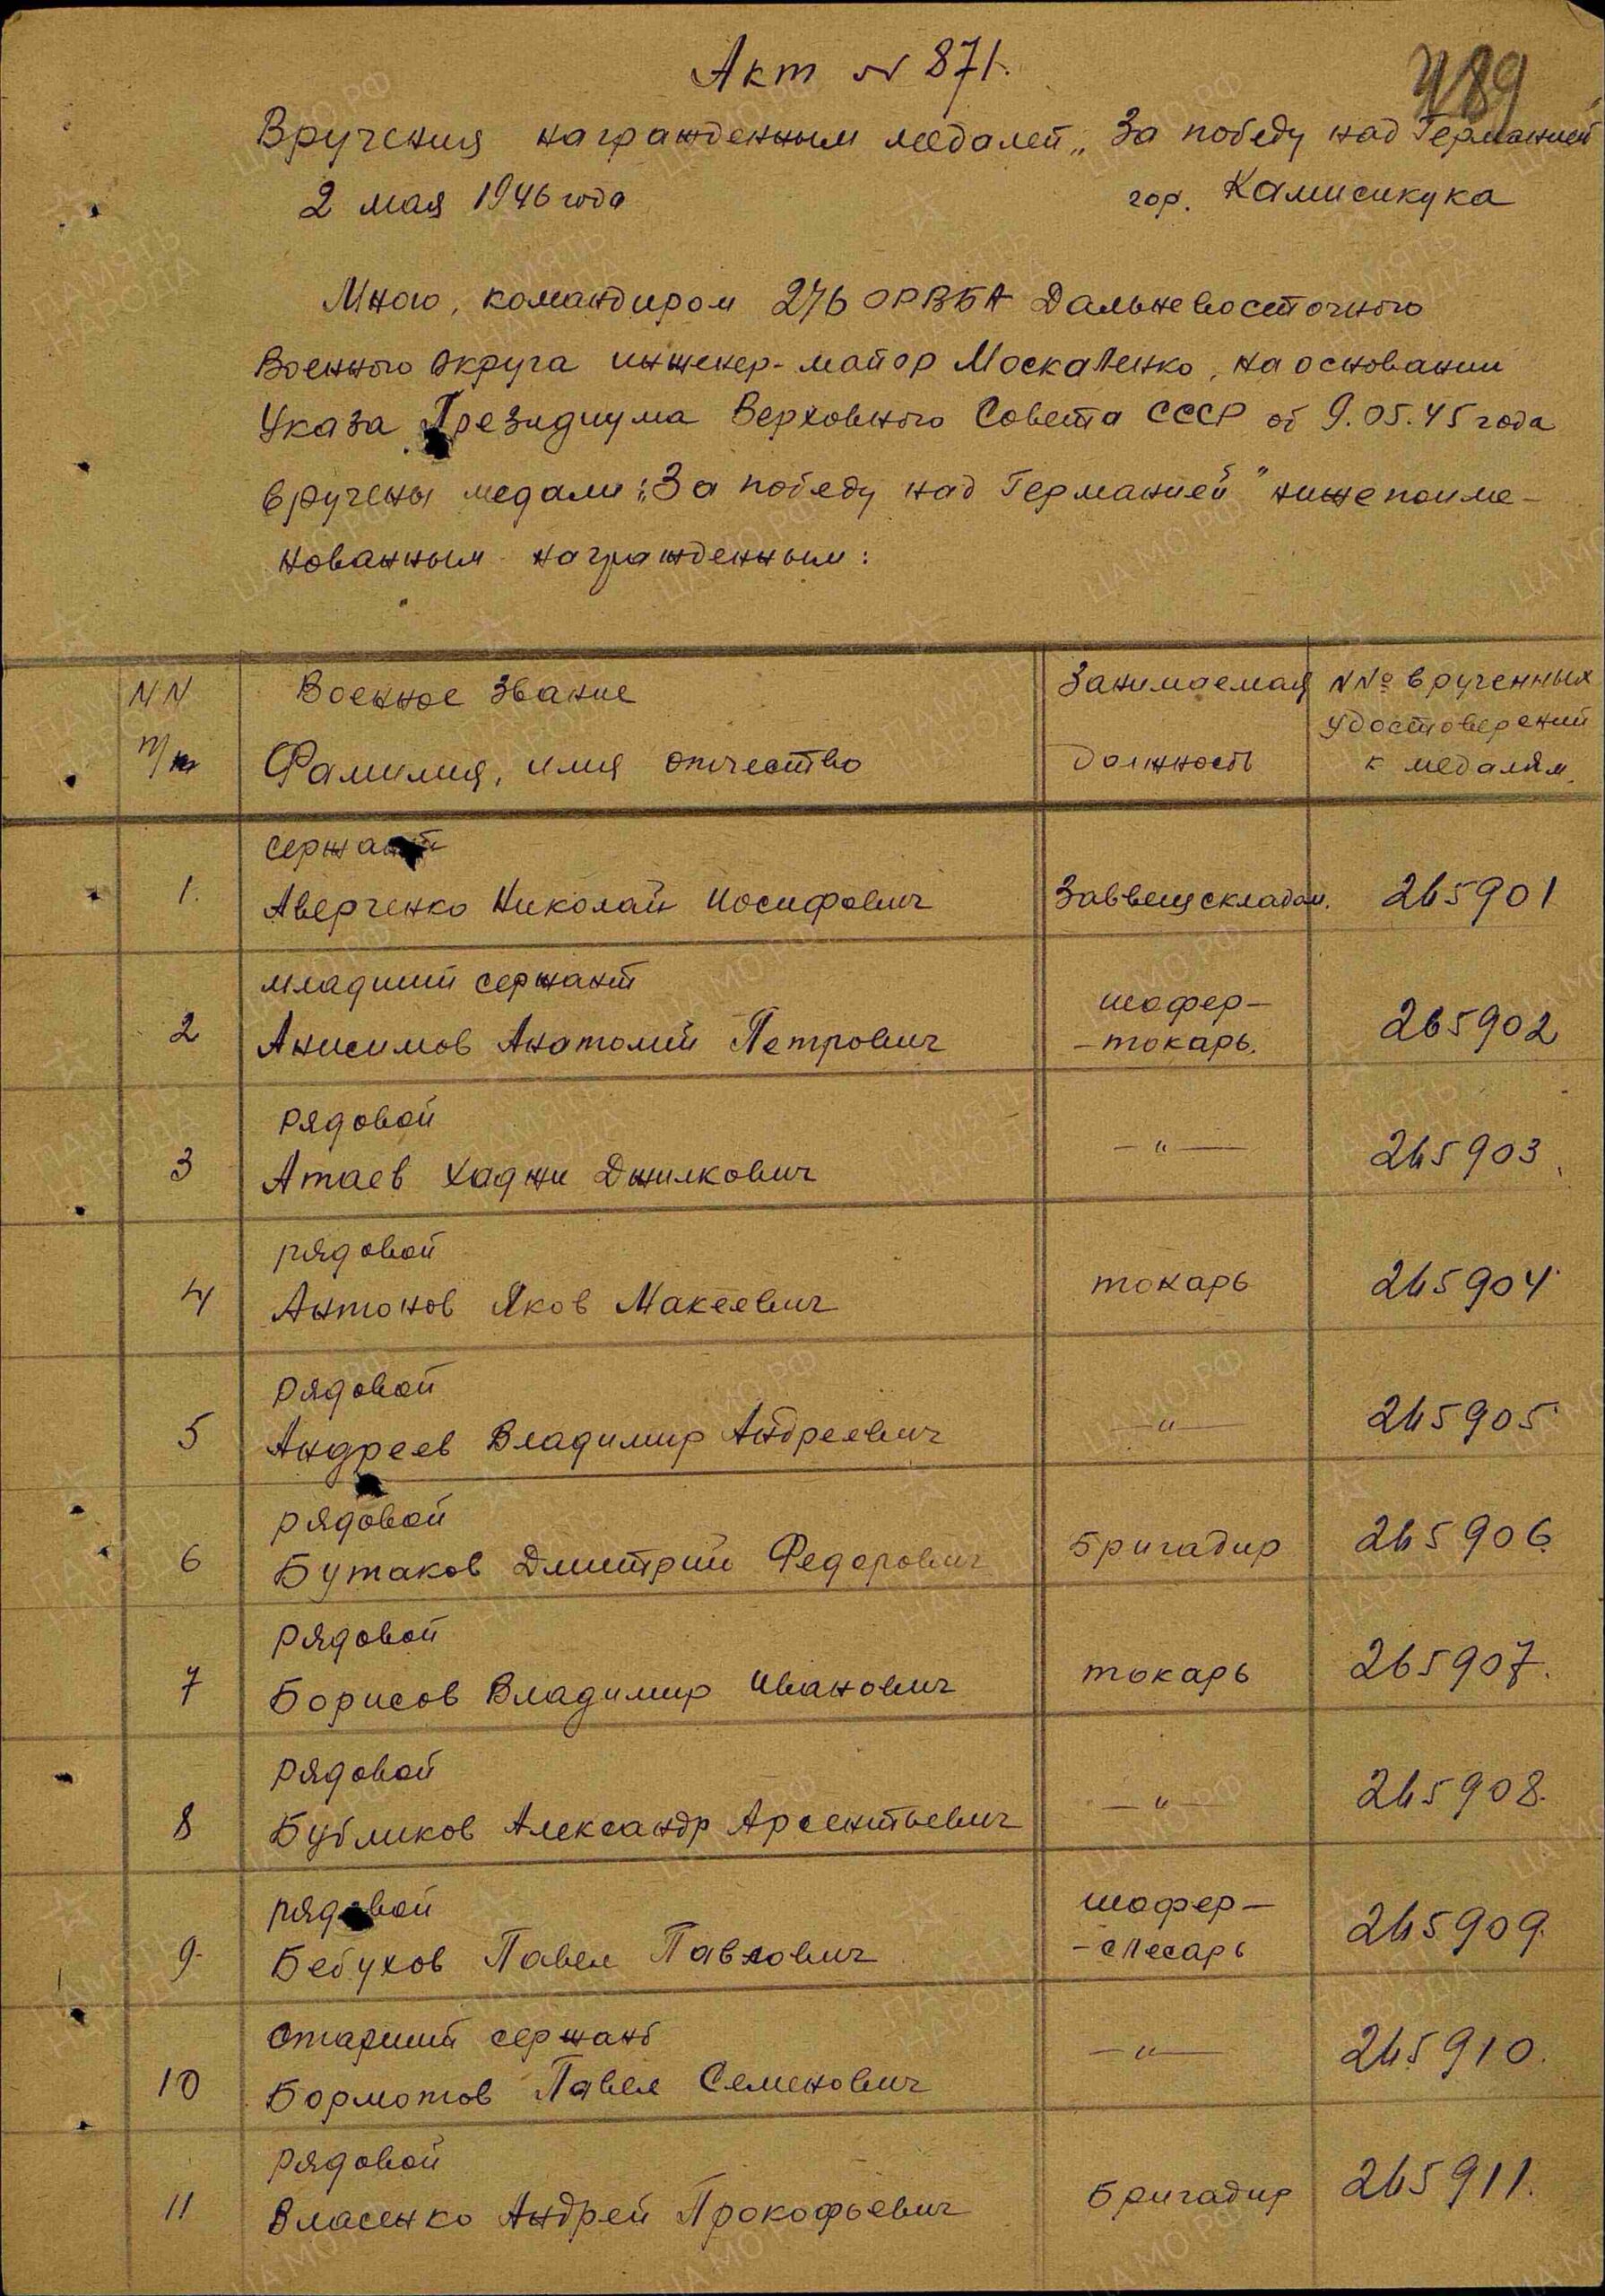 Акт № 871.
489
Вручения награжденным медалей „За победу над Германией
2 мая 1946 года гор. Камисикука
Мною, командиром 276 ОРВБА Дальневосточного
Военного округа инженер-майор Москаленко, на основании
Указа Президиума Верховного Совета СССР от 9.05.45 года
вручены медали: „За победу над Германией" нижепоиме-
нованным награжденным:
NN Военное звание Занимаемая NNº врученных
удостоверений
п/п Фамилия, имя отчество должность к медалям.
сержант
1. Аверченко Николай Иосифович Заввещскладом. 265901
младший сержант шофер-
2 Анисимов Анатолий Петрович -токарь. 265902
рядовой
3 Атаев Хаджи Джилкович —"— 265903
рядовой
4 Антонов Яков Макеевич токарь 265904
рядовой
5 Андреев Владимир Андреевич —"— 265905
рядовой
6 Бутаков Дмитрий Федорович Бригадир 265906
рядовой
7 Борисов Владимир Иванович токарь 265907.
рядовой
8 Бубликов Александр Арсентьевич —"— 265908.
рядовой шофер-
9. Бебухов Павел Павлович -слесарь 265909.
старший сержант
10 Бормотов Павел Семенович —"— 265910.
рядовой
11 Власенко Андрей Прокофьевич Бригадир 265911.
ПАМЯТЬ НАРОДА
ЦА МО РФ